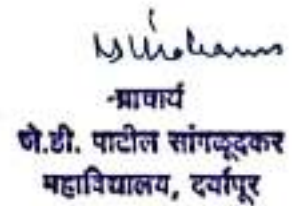 -प्राचार्य
जे.डी. पाटील सांगळूदकर
महाविद्यालय, दर्यापूर